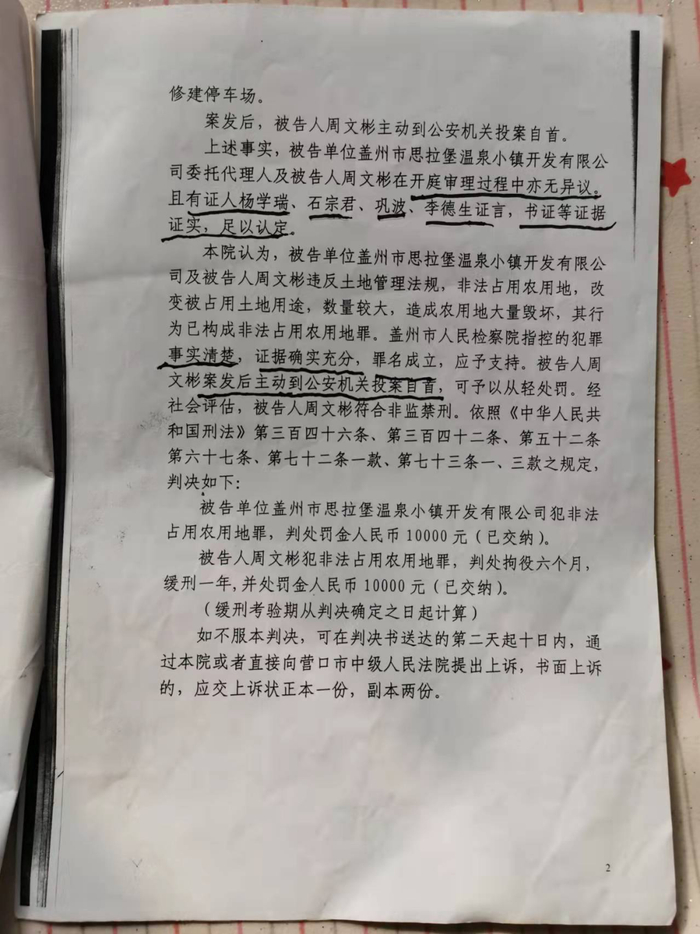 修建停车场。
案发后，被告人周文彬主动到公安机关投案自首。
上述事实，被告单位盖州市思拉堡温泉小镇开发有限公
司委托代理人及被告人周文彬在开庭审理过程中亦无异议。
且有证人杨学瑞、石宗君、巩波、李德生证言，书证等证据
证实，足以认定。
本院认为，被告单位盖州市思拉堡温泉小镇开发有限公
司及被告人周文彬违反土地管理法规，非法占用农用地，改
变被占用土地用途，数量较大，造成农用地大量毁坏，其行
为已构成非法占用农用地罪。盖州市人民检察院指控的犯罪
事实清楚，证据确实充分，罪名成立，应予支持。被告人周
文彬案发后主动到公安机关投案自首，可予以从轻处罚。经
社会评估，被告人周文彬符合非监禁刑。依照《中华人民共
和国刑法》第三百四十六条、第三百四十二条、第五十二条
第六十七条、第七十二条一款、第七十三条一、三款之规定，
判决如下：
被告单位盖州市思拉堡温泉小镇开发有限公司犯非法
占用农用地罪，判处罚金人民币10000元（已交纳）。
被告人周文彬犯非法占用农用地罪，判处拘役六个月，
缓刑一年，并处罚金人民币10000元（已交纳）。
（缓刑考验期从判决确定之日起计算）
如不服本判决，可在判决书送达的第二天起十日内，通
过本院或者直接向营口市中级人民法院提出上诉，书面上诉
的，应交上诉状正本一份，副本两份。
2